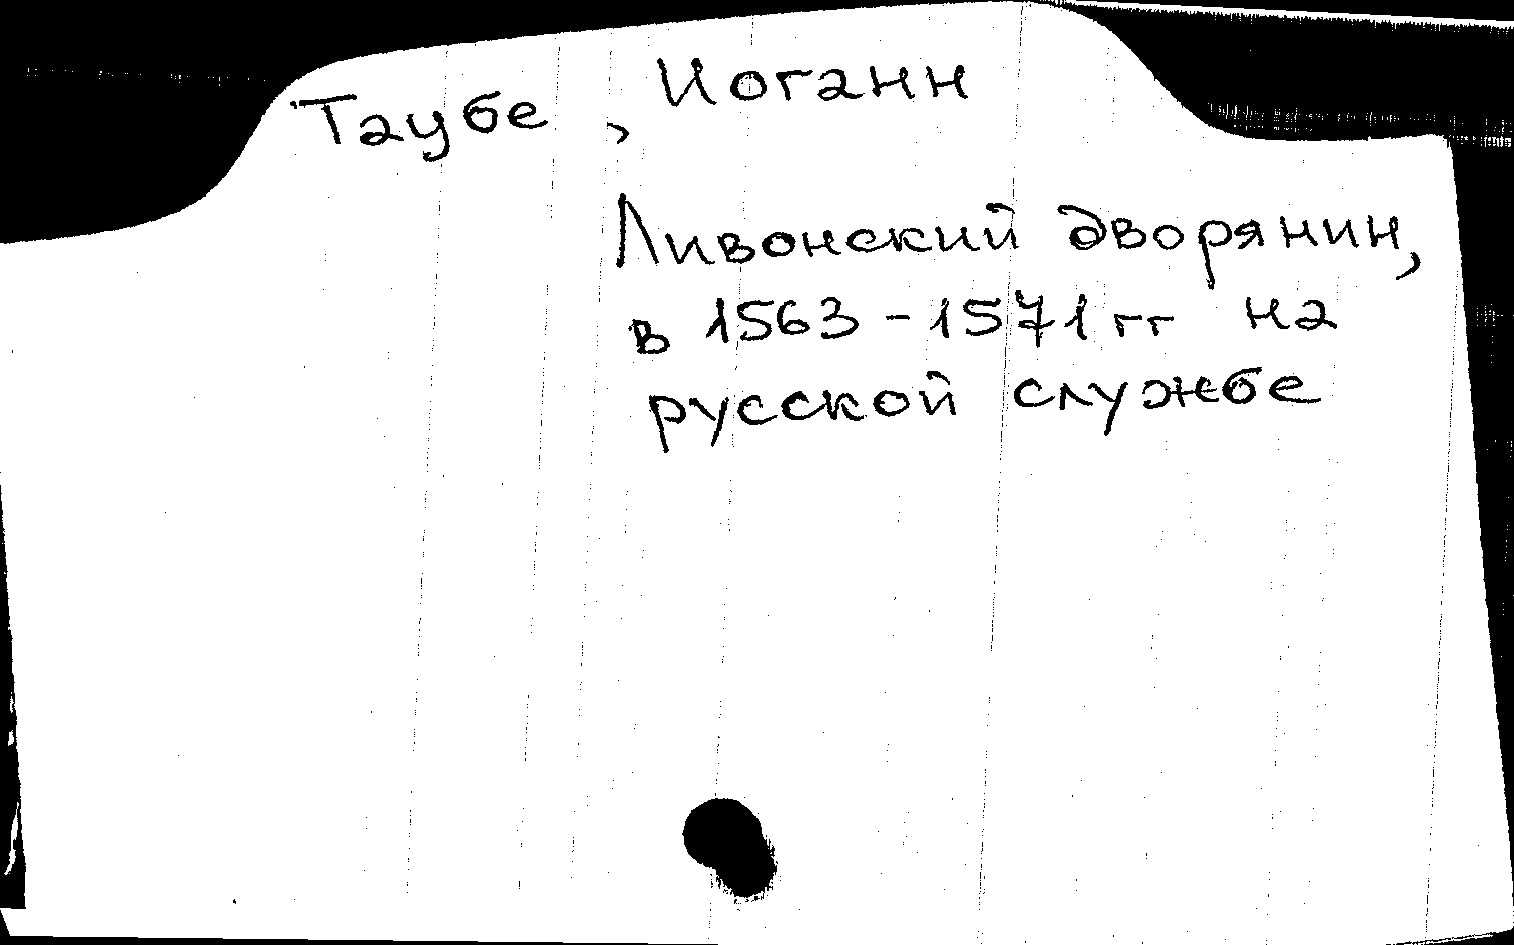 Таубе, Иоганн
Ливонский дворянин,
в 1563-1571 гг на
русской службе